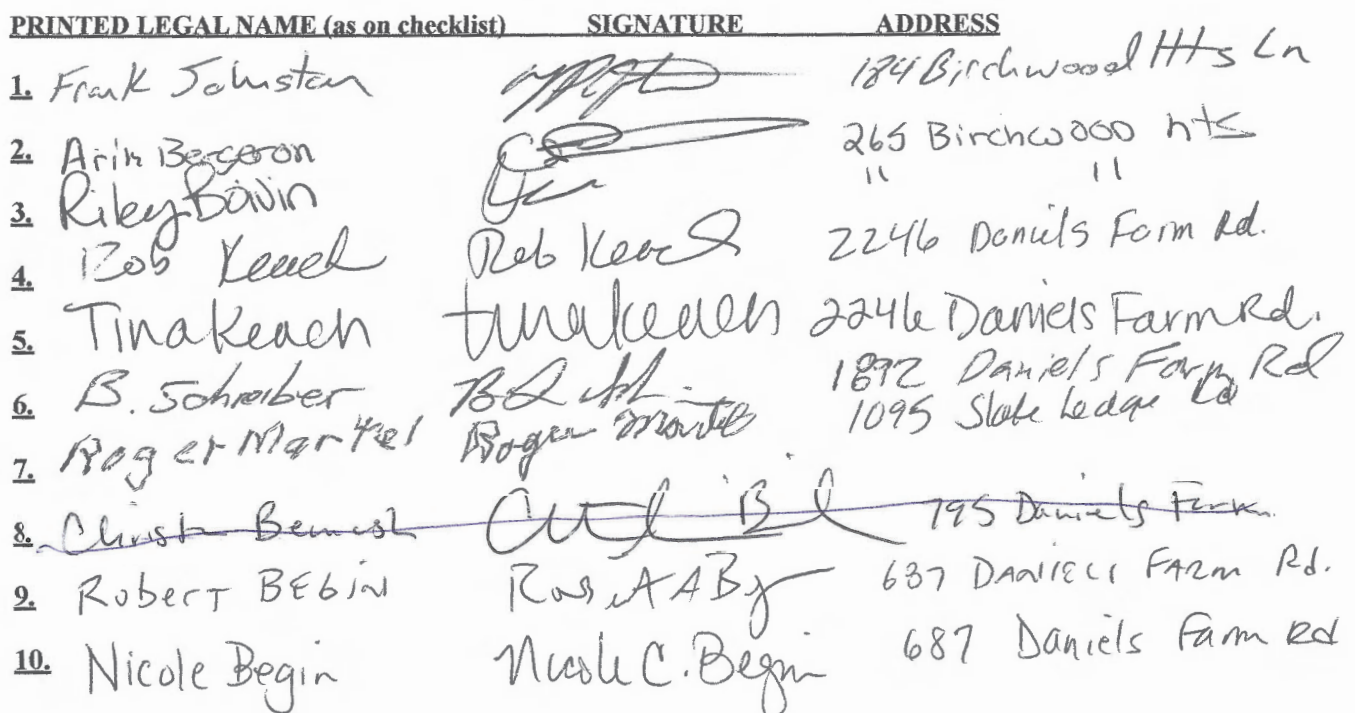 PRINTED LEGAL NAME (as on checklist) SIGNATURE ADDRESS
1. Frank Johnston 184 Birchwood Hts Ln
2. Arin Bergeron 265 Birchwood hts
3. Riley Boivin " "
4. Bob Keach Rob Keach 2246 Daniels Farm Rd.
5. Tina Keach tina keach 2246 Daniels Farm Rd.
6. B. Schreiber 1892 Daniels Farm Rd
7. Roger Martel Roger Martel 1095 Slate Ledge Rd
8. 795 Daniels Farm
9. Robert BEGIN 637 DANIELS FARM Rd.
10. Nicole Begin Nicole C. Begin 687 Daniels Farm Rd